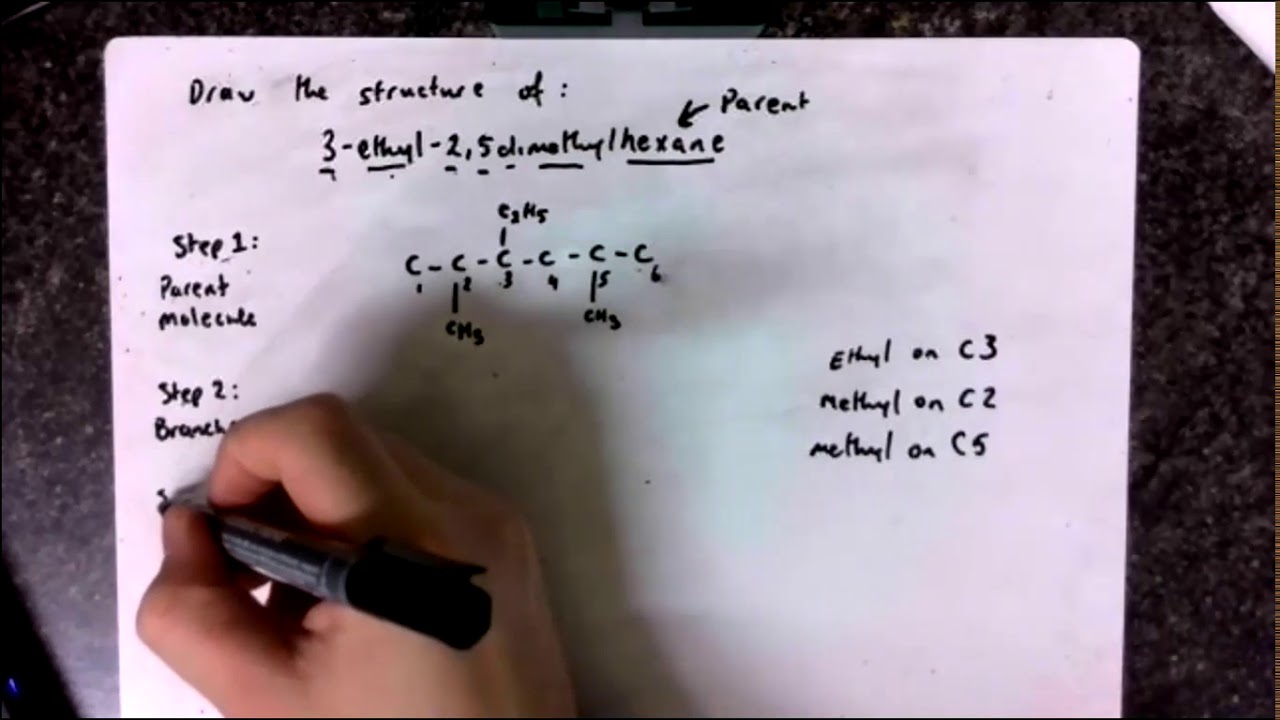 Draw the structure of:
Parent
3-ethyl-2,5dimethylhexane
Step 1:
Parent
molecule
C₂H₅
C - C - C - C - C - C
1 2 3 4 5 6
CH₃ CH₃
Ethyl on C3
methyl on C2
methyl on C5
Step 2: